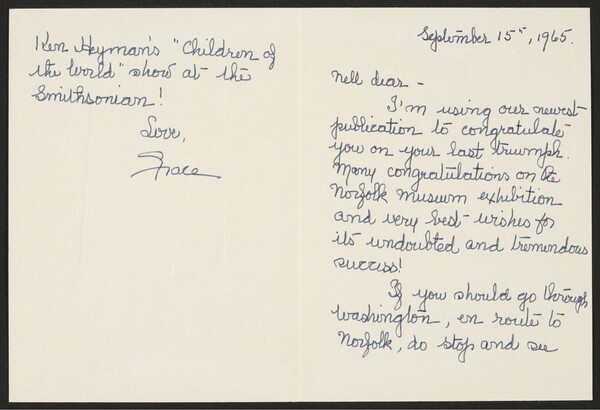 September 15th, 1965.
Nell dear -
I'm using our newest
publication to congratulate
you on your last triumph.
Many congratulations on the
Norfolk Museum exhibition
and very best wishes for
its undoubted and tremendous
success!
If you should go through
Washington, en route to
Norfolk, do stop and see
Ken Heyman's "Children of
the World" show at the
Smithsonian!
Love,
Grace